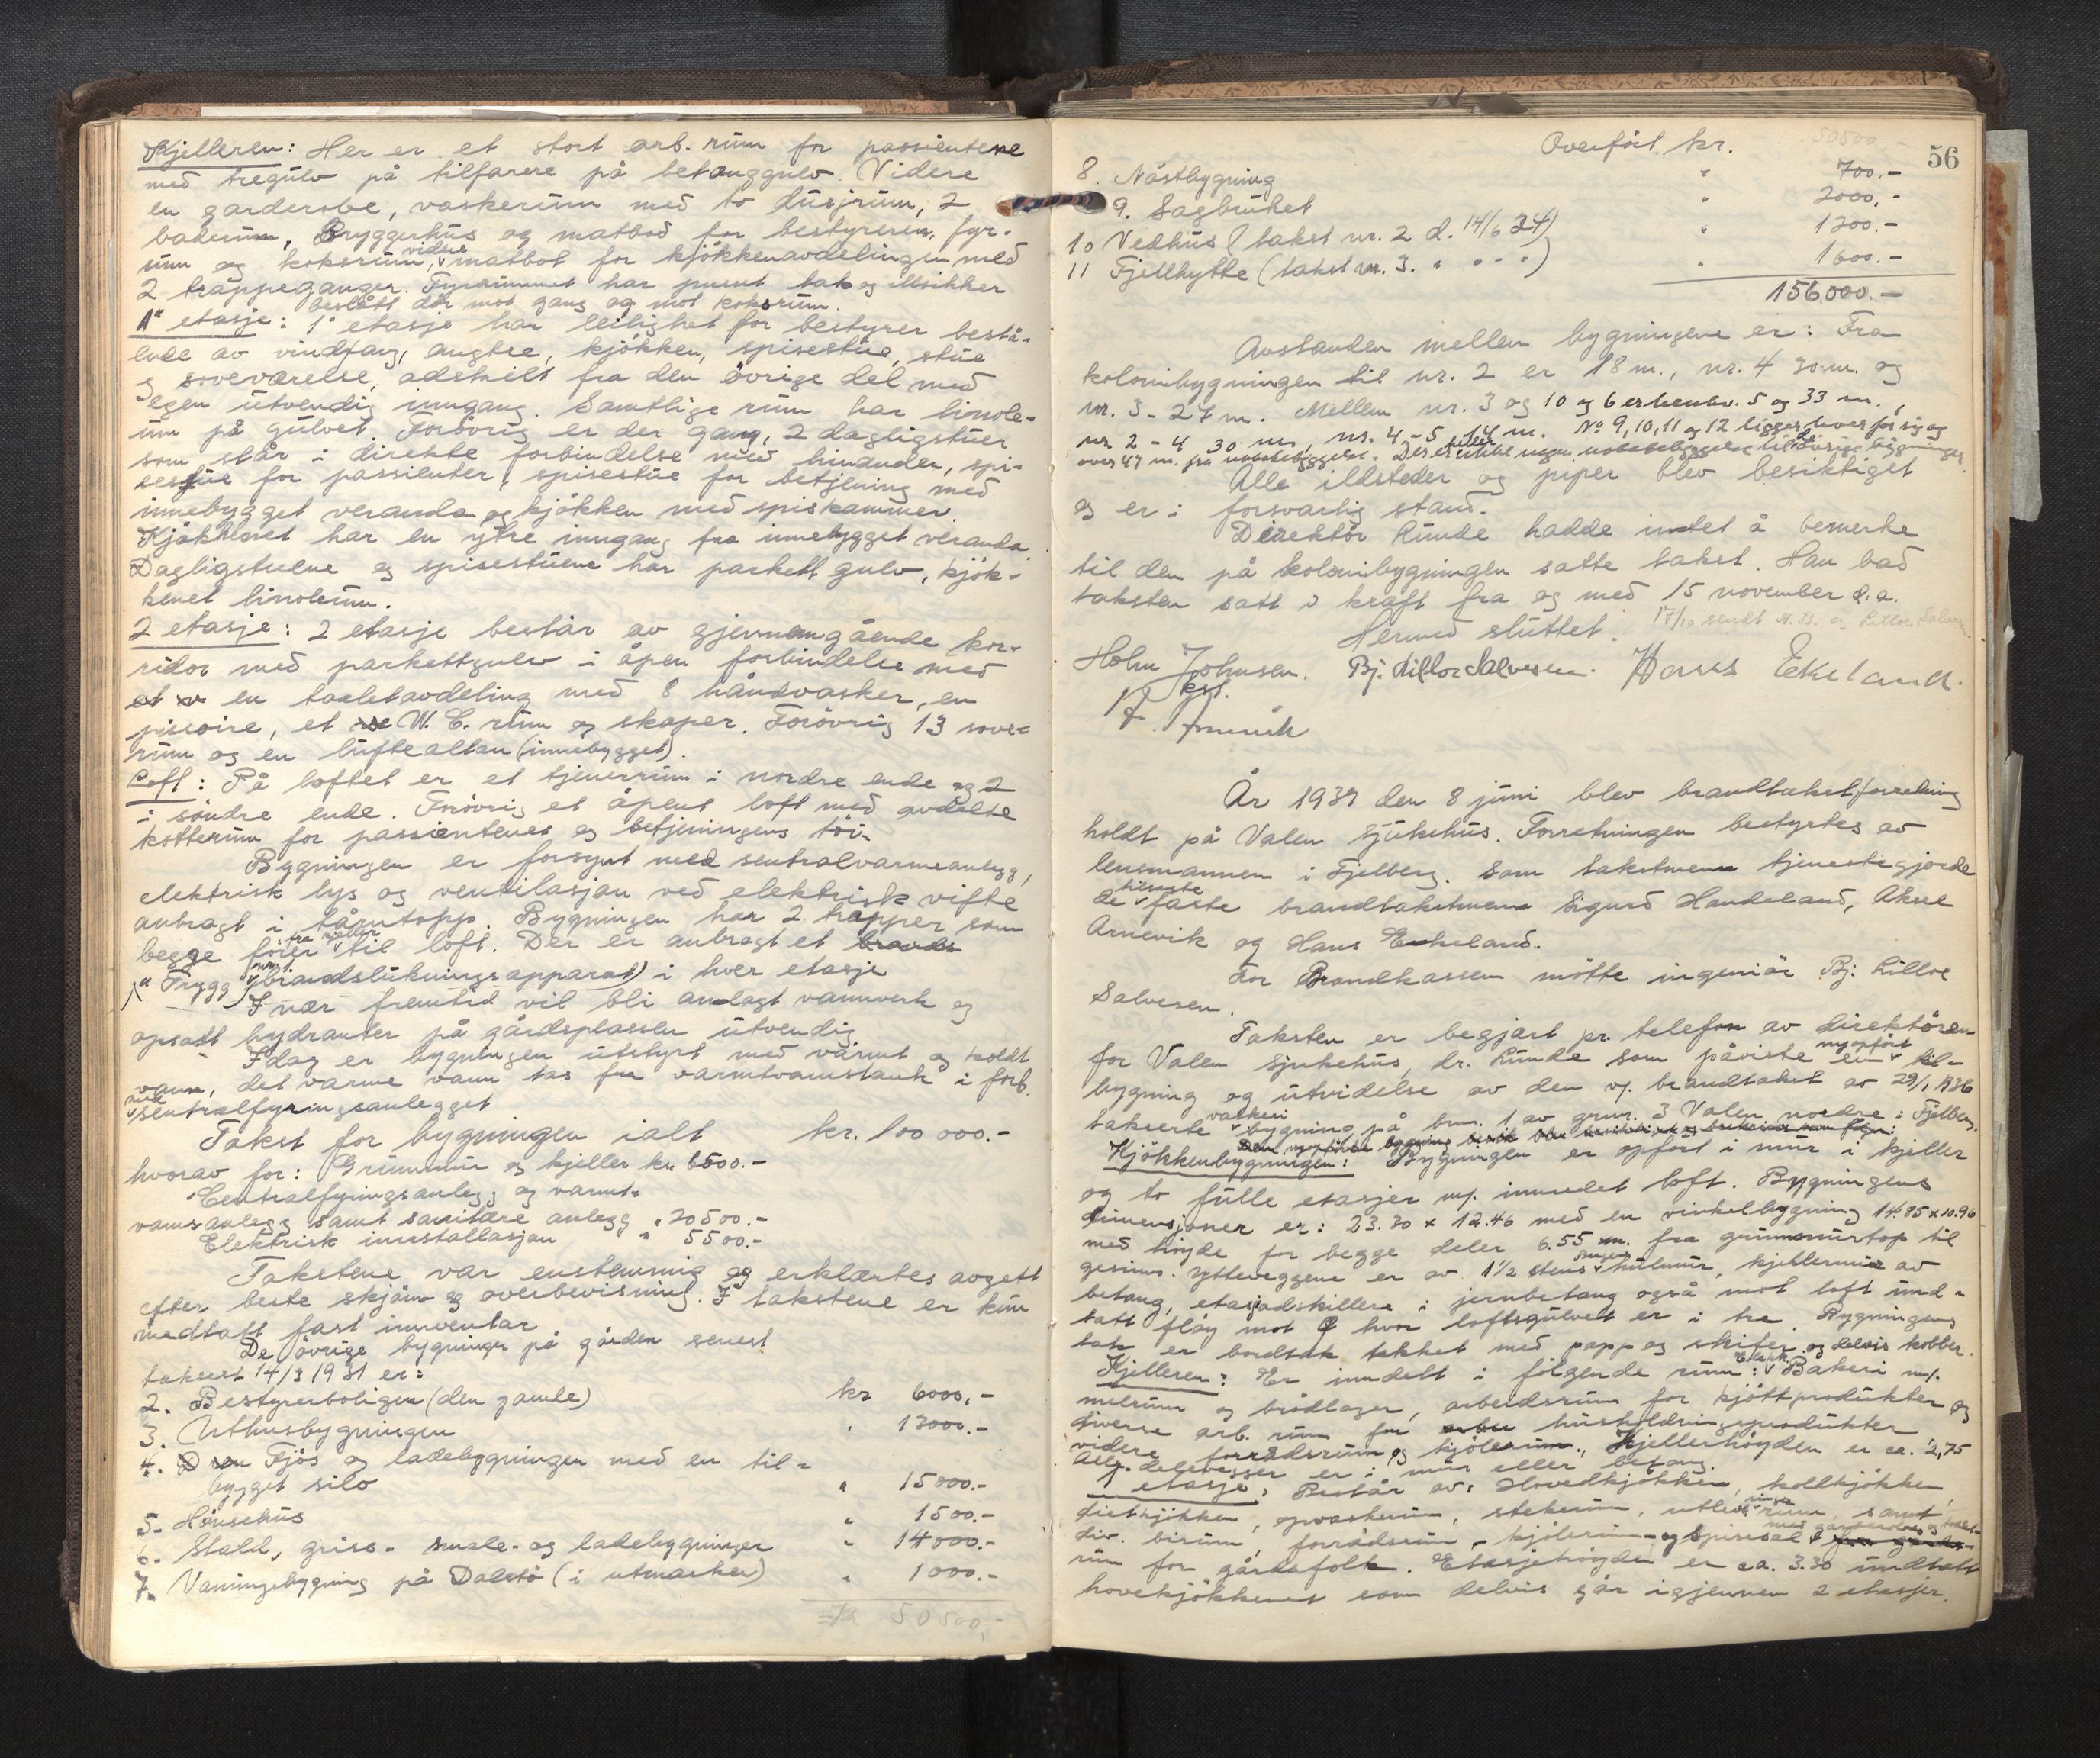 Kjelleren: Her er et stort arb. rum for passientene
med tregulv på tilfarere på betonggulv. Videre
en garderobe, vaskerum med to dusjrum, 2
baderum, Bryggerhus og matbod for bestyreren, fyr-
rum og koksrum, videre matbot for kjökkenavdelingen med
2 trappeganger. Fyrrummet har pusset tak og ildsikker
beslått dör mot gang og mot koksrum.
1ste etasje: 1ste etasje har leilighet for bestyrer bestå-
ende av vindfang, anglse, kjökken, spisestue, stue
og soveværelse, adskilt fra den övrige del med
egen utvendig inngang. Samtlige rum har linole-
um på gulvet. Forövrig er der gang, 2 dagligstuer
som står i direkte forbindelse med hinanden, spi-
sestue for passienter, spisestue for betjening med
innebygget veranda og kjökken med spiskammer.
Kjökkenet har en ytre inngang fra innebygget veranda.
Dagligstuene og spisestuene har parkett gulv, kjök-
kenet linoleum.
2 etasje: 2 etasje består av gjennemgående kor-
ridor med parkettgulv i åpen forbindelse med
en toaletavdeling med 8 håndvasker, en
pissoire, et W.C. rum og skaper. Forövrig 13 sove-
rum og en luftealtan (innebygget).
Loft: På loftet er et tjenerrum i nordre ende og 2
i söndre ende. Forövrig et åpent loft med avdelte
kotterum for passientenes og betjeningens töi.
Bygningen er forsynt med sentralvarmeanlegg,
elektrisk lys og ventilasjon ved elektrisk vifte
anbragt i tårntopp. Bygningen har 2 trapper som
begge förer fra kjeller til loft. Der er anbragt et
"Trygg" brandslukningsapparat) i hver etasje
I nær fremtid vil bli anlagt vannverk og
opsatt hydranter på gårdsplassen utvendig.
Idag er bygningen utstyrt med varmt og koldt
vann, det varme vann tas fra varmtvannstank i forb.
med sentralfyringsanlegget
Takst for bygningen ialt kr. 100 000.-
hvorav for: Grunnmur og kjeller kr. 6500.-
Centralfyringsanlegg og varmt-
vannsanlegg samt sanitære anlegg " 20500.-
Elektrisk innstallasjon " 5500.-
Takstene var enstemmig og erklærtes avgett
efter beste skjönn og overbevisning. I takstene er kun
medtatt fast innventar
De övrige bygninger på gården senest
taksert 14/3 1931 er:
2. Bestyrerboligen (den gamle) kr 6000,-
3. Uthusbygningen " 13000.-
4. Fjös og ladebygningen med en til-
bygget silo " 15000.-
5. Hönsehus " 1500.-
6. Stald, grise- smale- og ladebygninger " 14000.-
7. Vaaningsbygning på Dalstö (i utmarken) " 1000.-
Kr 50500,-
56
Overfört kr. 50500
8. Nöstbygning " 700.-
9. Sagbruket " 2000,-
10 Vedhus (takst nr. 2 d. 14/6 24) " 1200.-
11 Fjellhytte (takst nr. 3. " " " ") " 1600.-
156.000.-
Avstanden mellem bygningene er: Fra
kolonibygningen til nr. 2 er 18 m., nr. 4 30 m. og
nr. 3 - 27 m. Mellem nr. 3 og 10 og 6 er henhv. 5 og 33 m.,
nr. 2 - 4 30 m., nr. 4 - 5 14 m. No 9, 10, 11 og 12 ligger hver for sig og
over 47 m. fra nabobebyggelse. Der er heller ikke nogen nabobebyggelse til de övrige bygninger.
Alle ildsteder og piper blev besiktiget
og er i forsvarlig stand.
Direktör Lunde hadde intet å bemerke
til den på kolonibygningen satte takst. Han bad
taksten satt i kraft fra og med 15 november d.a.
Hermed sluttet. 17/10 sendt N.B. og Lilloe Salvesen
Holm Johnsen. Bj. Lilloe Salvesen. Hans Eikeland.
kst.
År 1937 den 8 juni blev brandtakstforretning
holdt på Valen sjukehus. Forretningen bestyrtes av
lensmannen i Fjelberg. Som takstmenn tjenestegjorde
de tilsatte faste brandtakstmenn Sigurd Handeland, Aksel
Arnevik og Hans Eikeland.
For Brandkassen mötte ingeniör Bj. Lilloe
Salvesen.
Taksten er begjært pr. telefon av direktören
for Valen sjukehus, dr. Lunde som påviste en nyopfört til-
bygning og utvidelse av den v/. brandtakst av 29/1 1936
takserte vaskeribygning på brnr. 1 av grnr. 3 Valen nordre i Fjelberg.
Kjökkenbygningen: Bygningen er opfört i mur i kjeller
og to fulle etasjer m/. innredet loft. Bygningens
dimensjoner er: 23.30 x 12.46 med en vinkelbygning 14.85 x 10.96
med höyde for begge deler 6.55 m. fra grunnmurtop til
gesims. Ytteveggene er av 1 1/2 stens hulmur, kjellermur av
betong, etasjeadskillere i jernbetong også mot loft und-
tatt flöy mot Ø hvor loftsgulvet er i tre. Bygningens
tak er bordtak tekket med papp og skifer og delvis kobber.
Kjelleren: Er inndelt i fölgende rum: Elektr. Bakeri m/.
melrum og brödlager, arbeidsrum for kjöttprodukter og
diverse arb. rum for husholdningsprodukter
videre forrådsrum og kjölerum. Kjellerhöyden er ca. 2,75
Alle delevegger er i mur eller betong.
1 etasje: Består av: Hovedkjökken, koldkjökken,
dietkjökken, opvaskrum, stekerum, utleveringsrum, samt
div. birum, forrådsrum, kjölerum og spisesal med garderobe og toalet-
rum for gårdsfolk. Etasjehöyden er ca. 3.30 undtatt
hovekjökkenet som delvis går igjennem 2 etasjer.